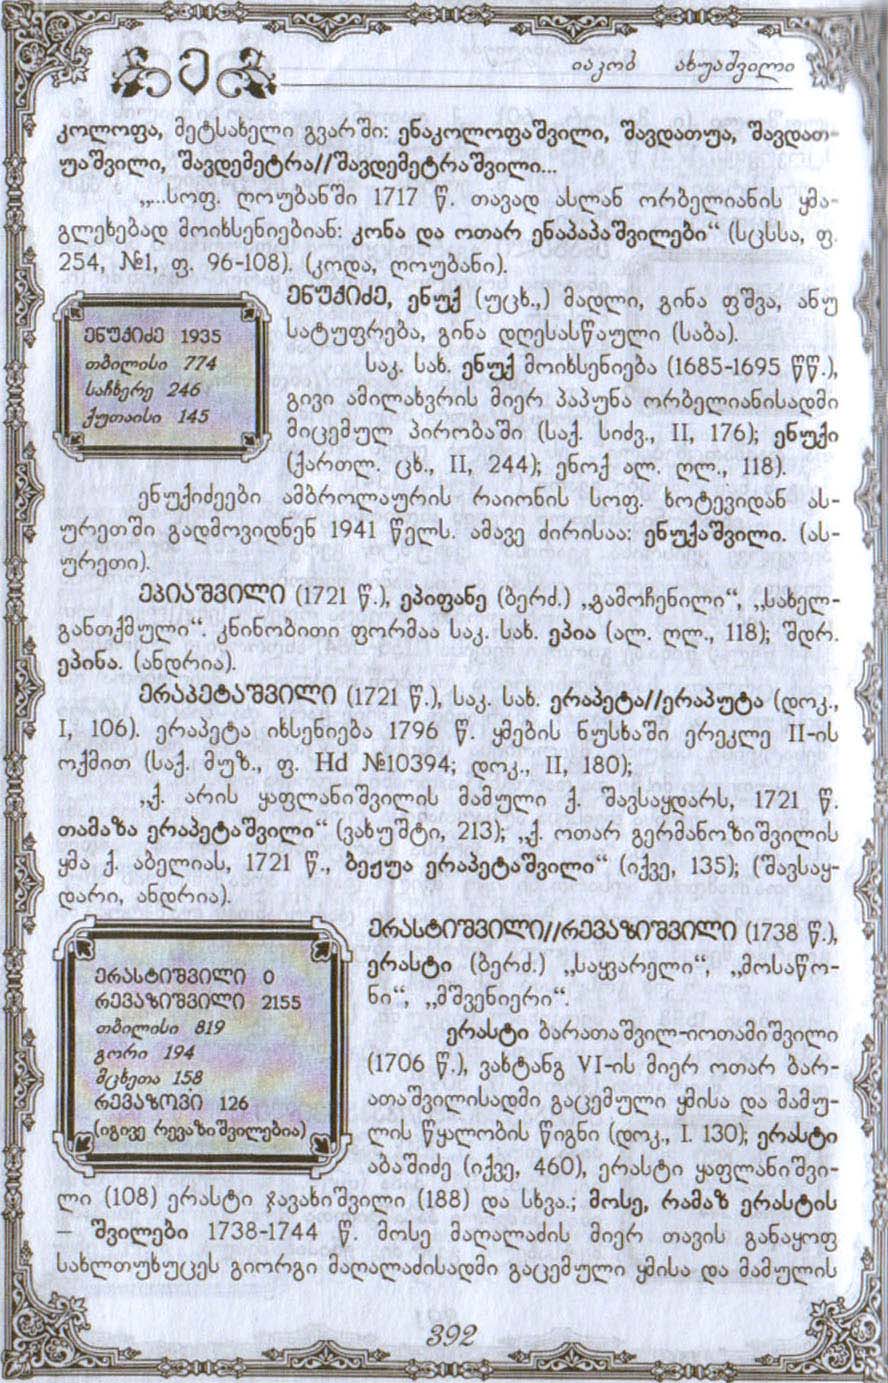 ე
იაკობ ახუაშვილი
კოლოფა, მეტსახელი გვარში: ენაკოლოფაშვილი, შავდათუა, შავდათ-
უაშვილი, შავდემეტრა//შავდემეტრაშვილი...
„...სოფ. ღოუბანში 1717 წ. თავად ასლან ორბელიანის ყმა-
გლეხებად მოიხსენიებიან: კონა და ოთარ ენაპაპაშვილები“ (სცსსა, ფ.
254, №1, ფ. 96-108). (კოდა, ღოუბანი).
ენუქიძე, ენუქ (უცხ.,) მადლი, გინა ფშვა, ანუ
სატუფრება, გინა დღესასწაული (საბა).
საკ. სახ. ენუქ მოიხსენიება (1685-1695 წწ.),
გივი ამილახვრის მიერ პაპუნა ორბელიანისადმი
მიცემულ პირობაში (საქ. სიძვ., II, 176); ენუქი
(ქართლ. ცხ., II, 244); ენოქ ალ. ღლ., 118).
ენუქიძე 1935
თბილისი 774
საჩხერე 246
ქუთაისი 145
ენუქიძეები ამბროლაურის რაიონის სოფ. ხოტევიდან ას-
ურეთში გადმოვიდნენ 1941 წელს. ამავე ძირისაა: ენუქაშვილი. (ას-
ურეთი).
ეპიაშვილი (1721 წ.), ეპიფანე (ბერძ.) „გამოჩენილი“, „სახელ-
განთქმული“. კნინობითი ფორმაა საკ. სახ. ეპია (ალ. ღლ., 118); შდრ.
ეპინა. (ანდრია).
ერაპეტაშვილი (1721 წ.), საკ. სახ. ერაპეტა//ერაპუტა (დოკ.,
I, 106). ერაპეტა იხსენიება 1796 წ. ყმების ნუსხაში ერეკლე II-ის
ოქმით (საქ. მუზ., ფ. Hd №10394; დოკ., II, 180);
„ქ. არის ყაფლანიშვილის მამული ქ. შავსაყდარს, 1721 წ.
თამაზა ერაპეტაშვილი“ (ვახუშტი, 213); „ქ. ოთარ გერმანოზიშვილის
ყმა ქ. აბელიას, 1721 წ., ბეჟუა ერაპეტაშვილი“ (იქვე, 135); (შავსაყ-
დარი, ანდრია).
ერასტიშვილი//რევაზიშვილი (1738 წ.),
ერასტი (ბერძ.) „საყვარელი“, „მოსაწო-
ნი“, „მშვენიერი“.
ერასტი ბარათაშვილ-იოთამიშვილი
(1706 წ.), ვახტანგ VI-ის მიერ ოთარ ბარ-
ათაშვილისადმი გაცემული ყმისა და მამუ-
ლის წყალობის წიგნი (დოკ., I. 130); ერასტი
აბაშიძე (იქვე, 460), ერასტი ყაფლანიშვი-
ერასტიშვილი 0
რევაზიშვილი 2155
თბილისი 819
გორი 194
მცხეთა 158
რევაზოვი 126
(იგივე რევაზიშვილებია)
ლი (108) ერასტი ჯავახიშვილი (188) და სხვა.; მოსე, რამაზ ერასტის
– შვილები 1738-1744 წ. მოსე მაღალაძის მიერ თავის განაყოფ
სახლთუხუცეს გიორგი მაღალაძისადმი გაცემული ყმისა და მამულის
392